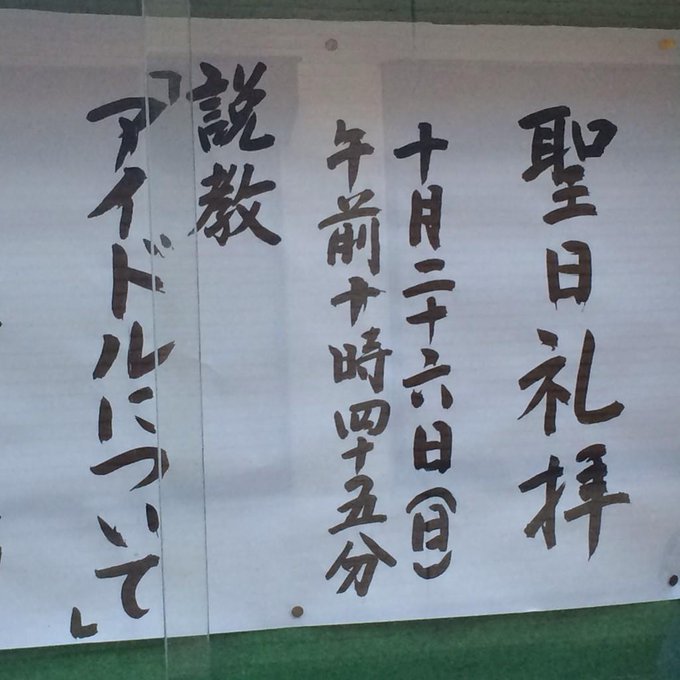 聖日礼拝
十月二十六日(日)
午前十時四十五分
説教
「アイドルについて」